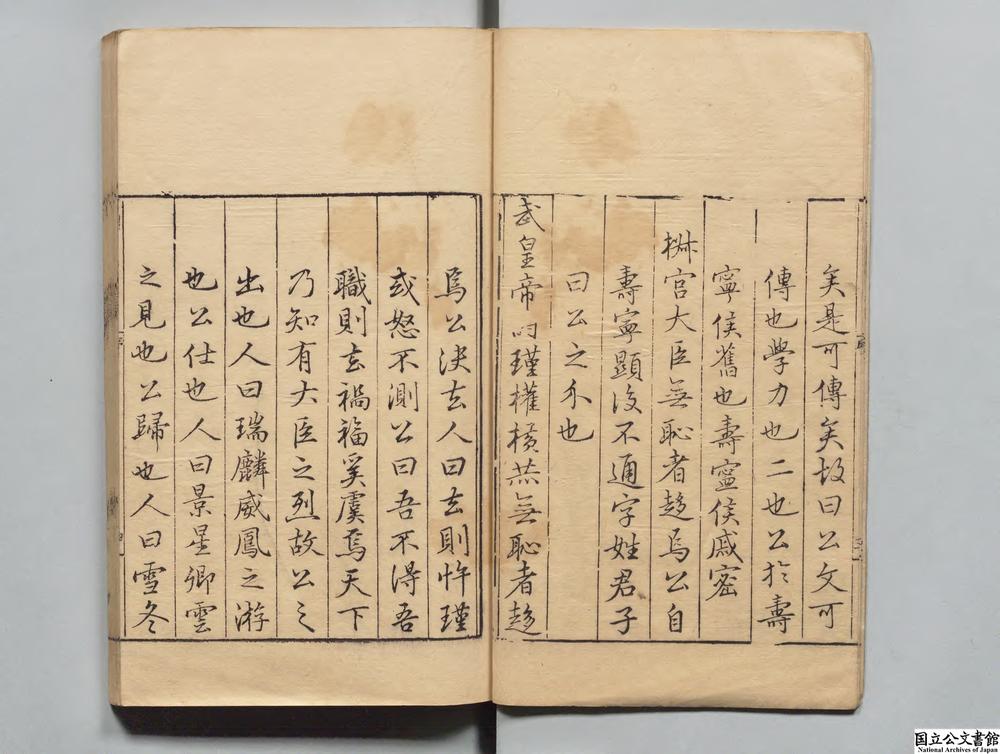 矣是可傳矣故曰公文可
傳也學力也二也公於壽
寧侯舊也壽寧侯戚密
椒宮大臣無恥者趍焉公自
壽寧顯後不通字姓君子
曰公之介也
武皇帝时瑾權橫恭無恥者趍
焉公決去人曰去則忤瑾
或怒不測公曰吾不得吾
職則去禍福奚虞焉天下
乃知有大臣之烈故公之
出也人曰瑞麟威鳳之游
也公仕也人曰景星卿雲
之見也公歸也人曰雪冬
国立公文書館
National Archives of Japan